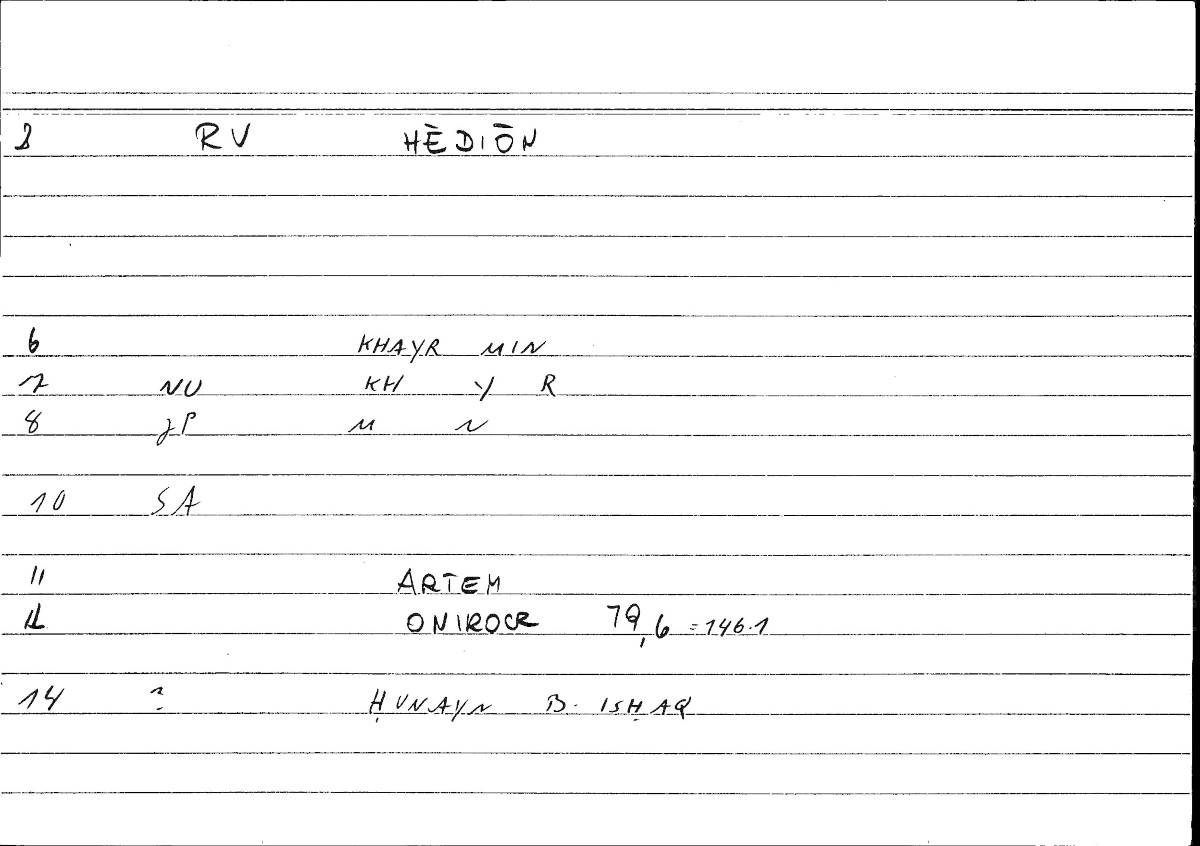 RV HĒDIŌN
6 KHAYR MIN
7 NU KH Y R
8 JP M N
10 SA
11 ARTEM
12 ONIROCR 79,6 =146.1
14 ? ḤUNAYN B. ISḤAQ